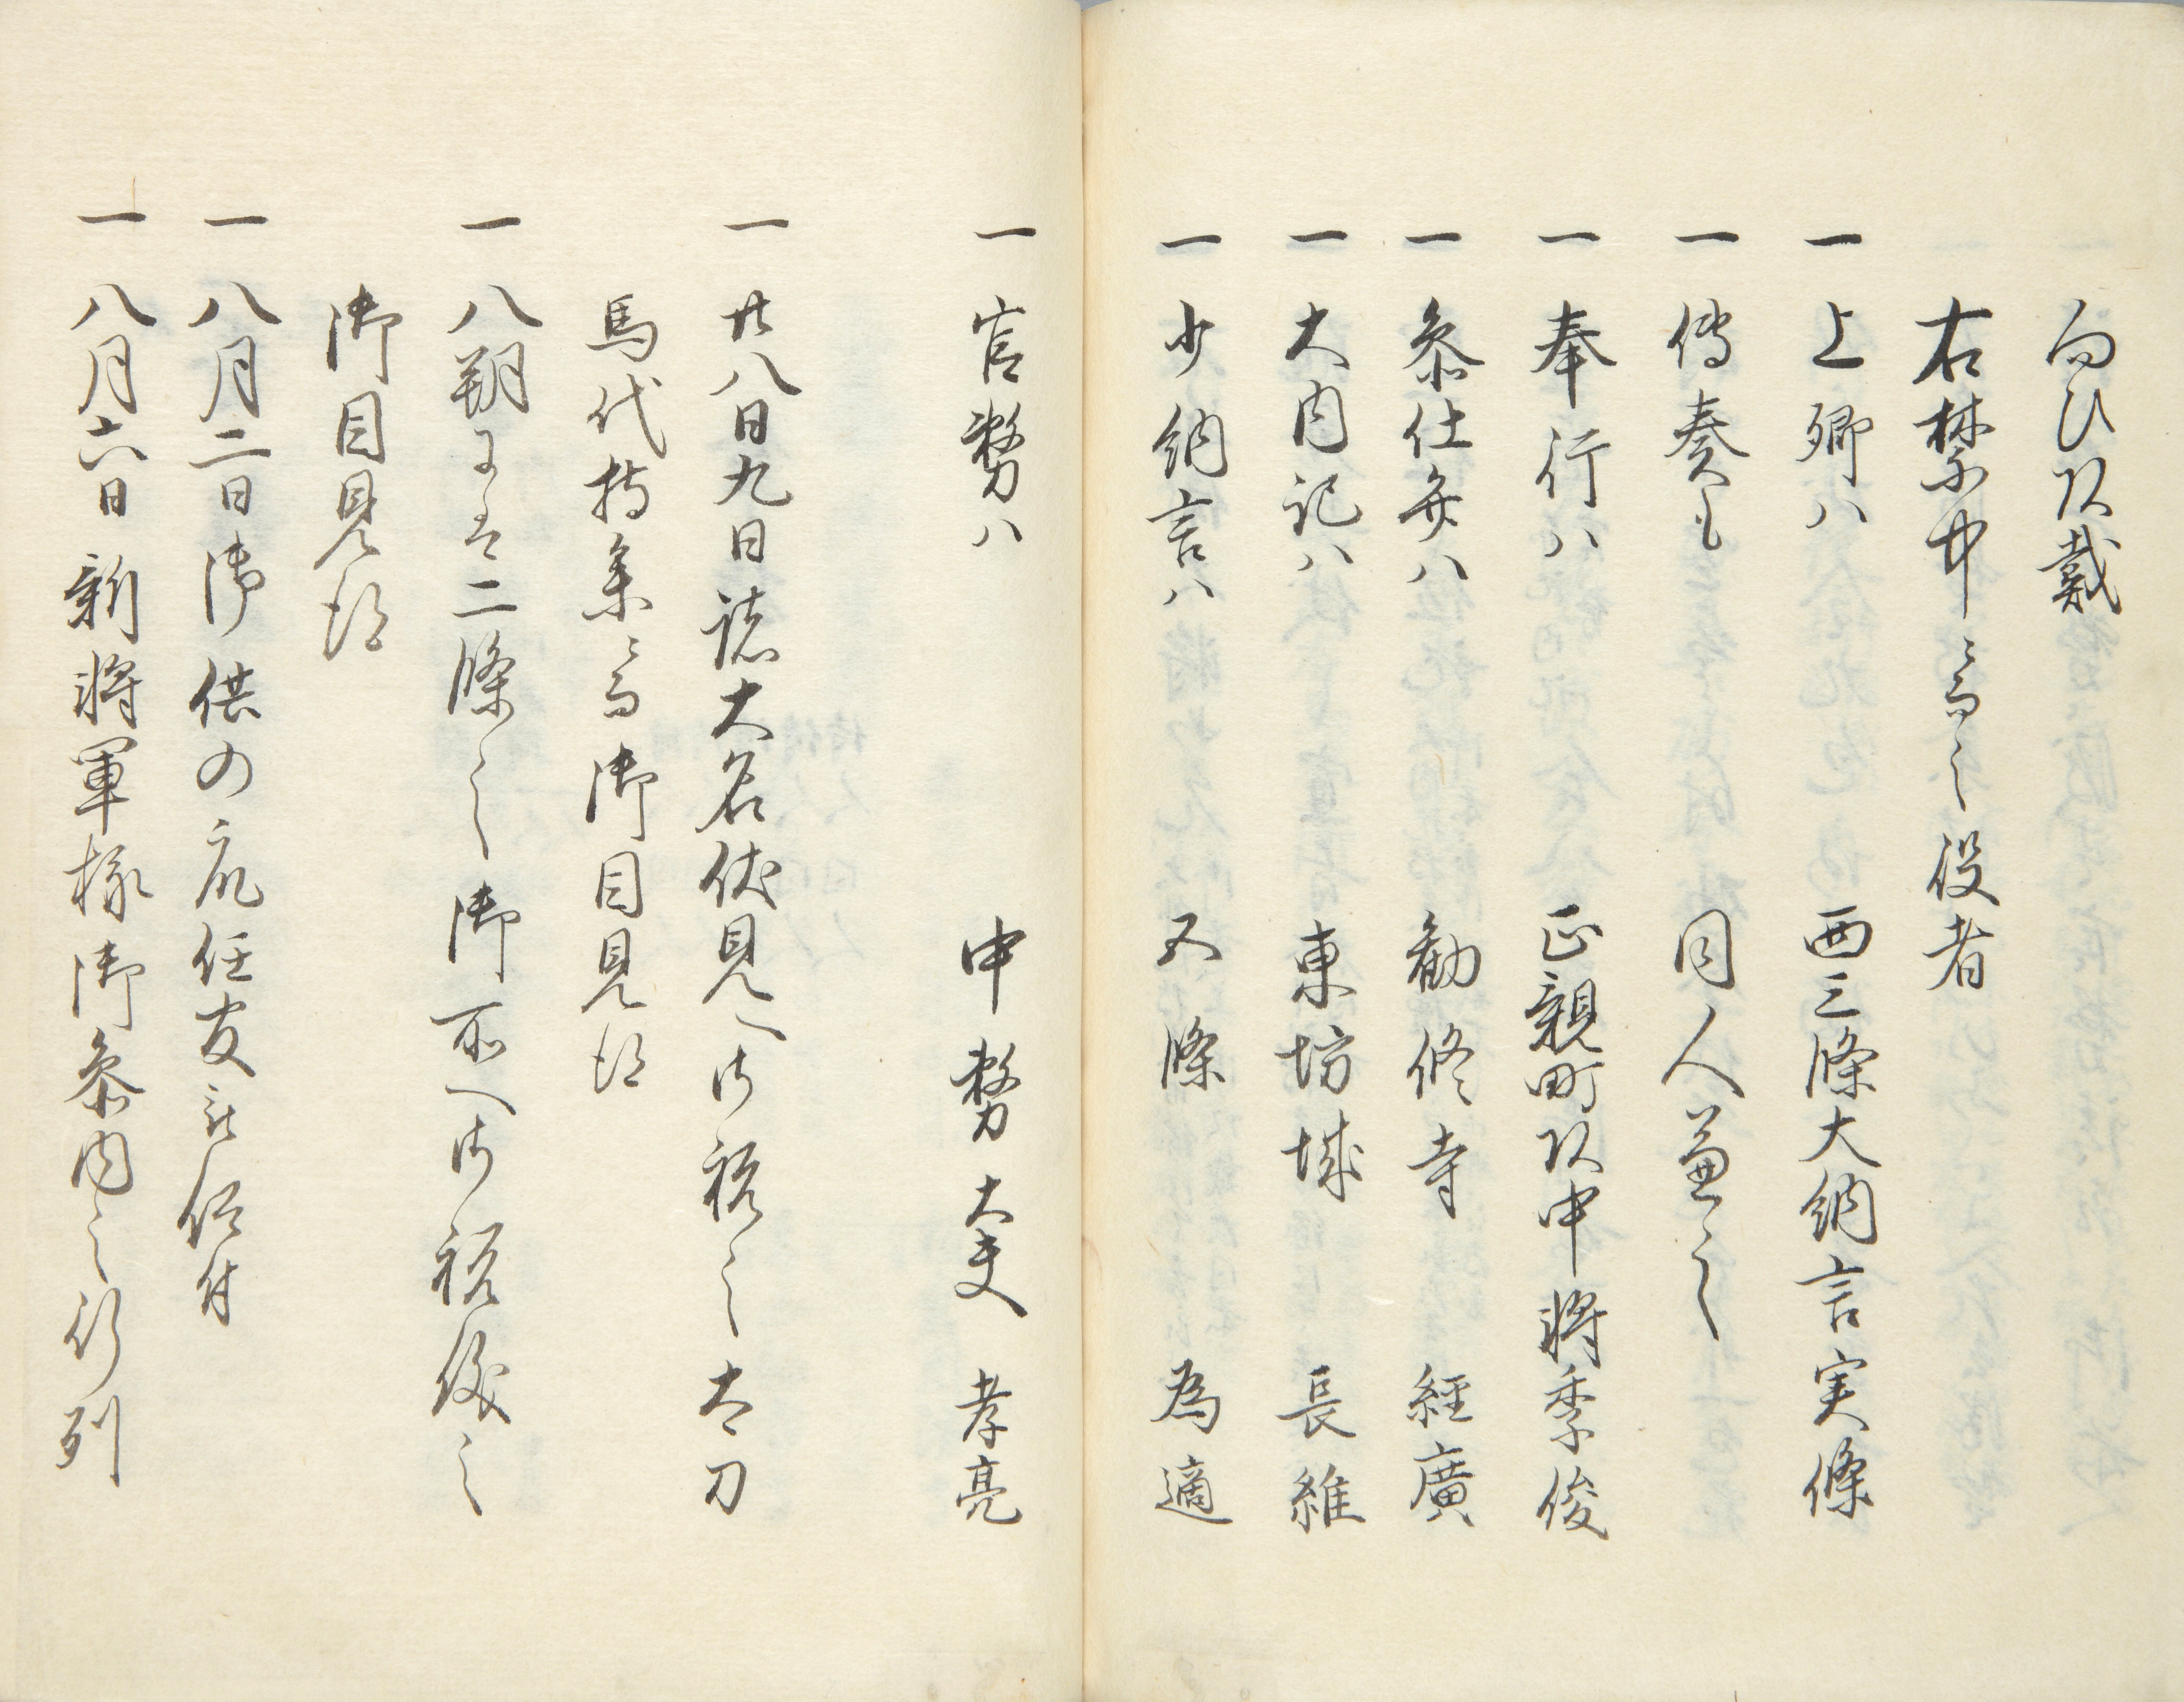 向ひ頂戴
右禁中ニ而之役者
一 上卿ハ 西三條大納言実條
一 傳奏も 同人兼之
一 奉行ハ 正親町頭中将季俊
一 参仕弁ハ 勧修寺 経廣
一 大内記ハ 東坊城 長維
一 少納言ハ 五條 為適
一 官務ハ 中務大夫 孝亮
一 廿八日九日諸大名伏見へ御祝之太刀
馬代持参ニ而御目見得
一 八朔にハ二條之御所へ御祝儀之
御目見得
一 八月二日御供の衆任官被仰付
一 八月六日新将軍様御参内之行列